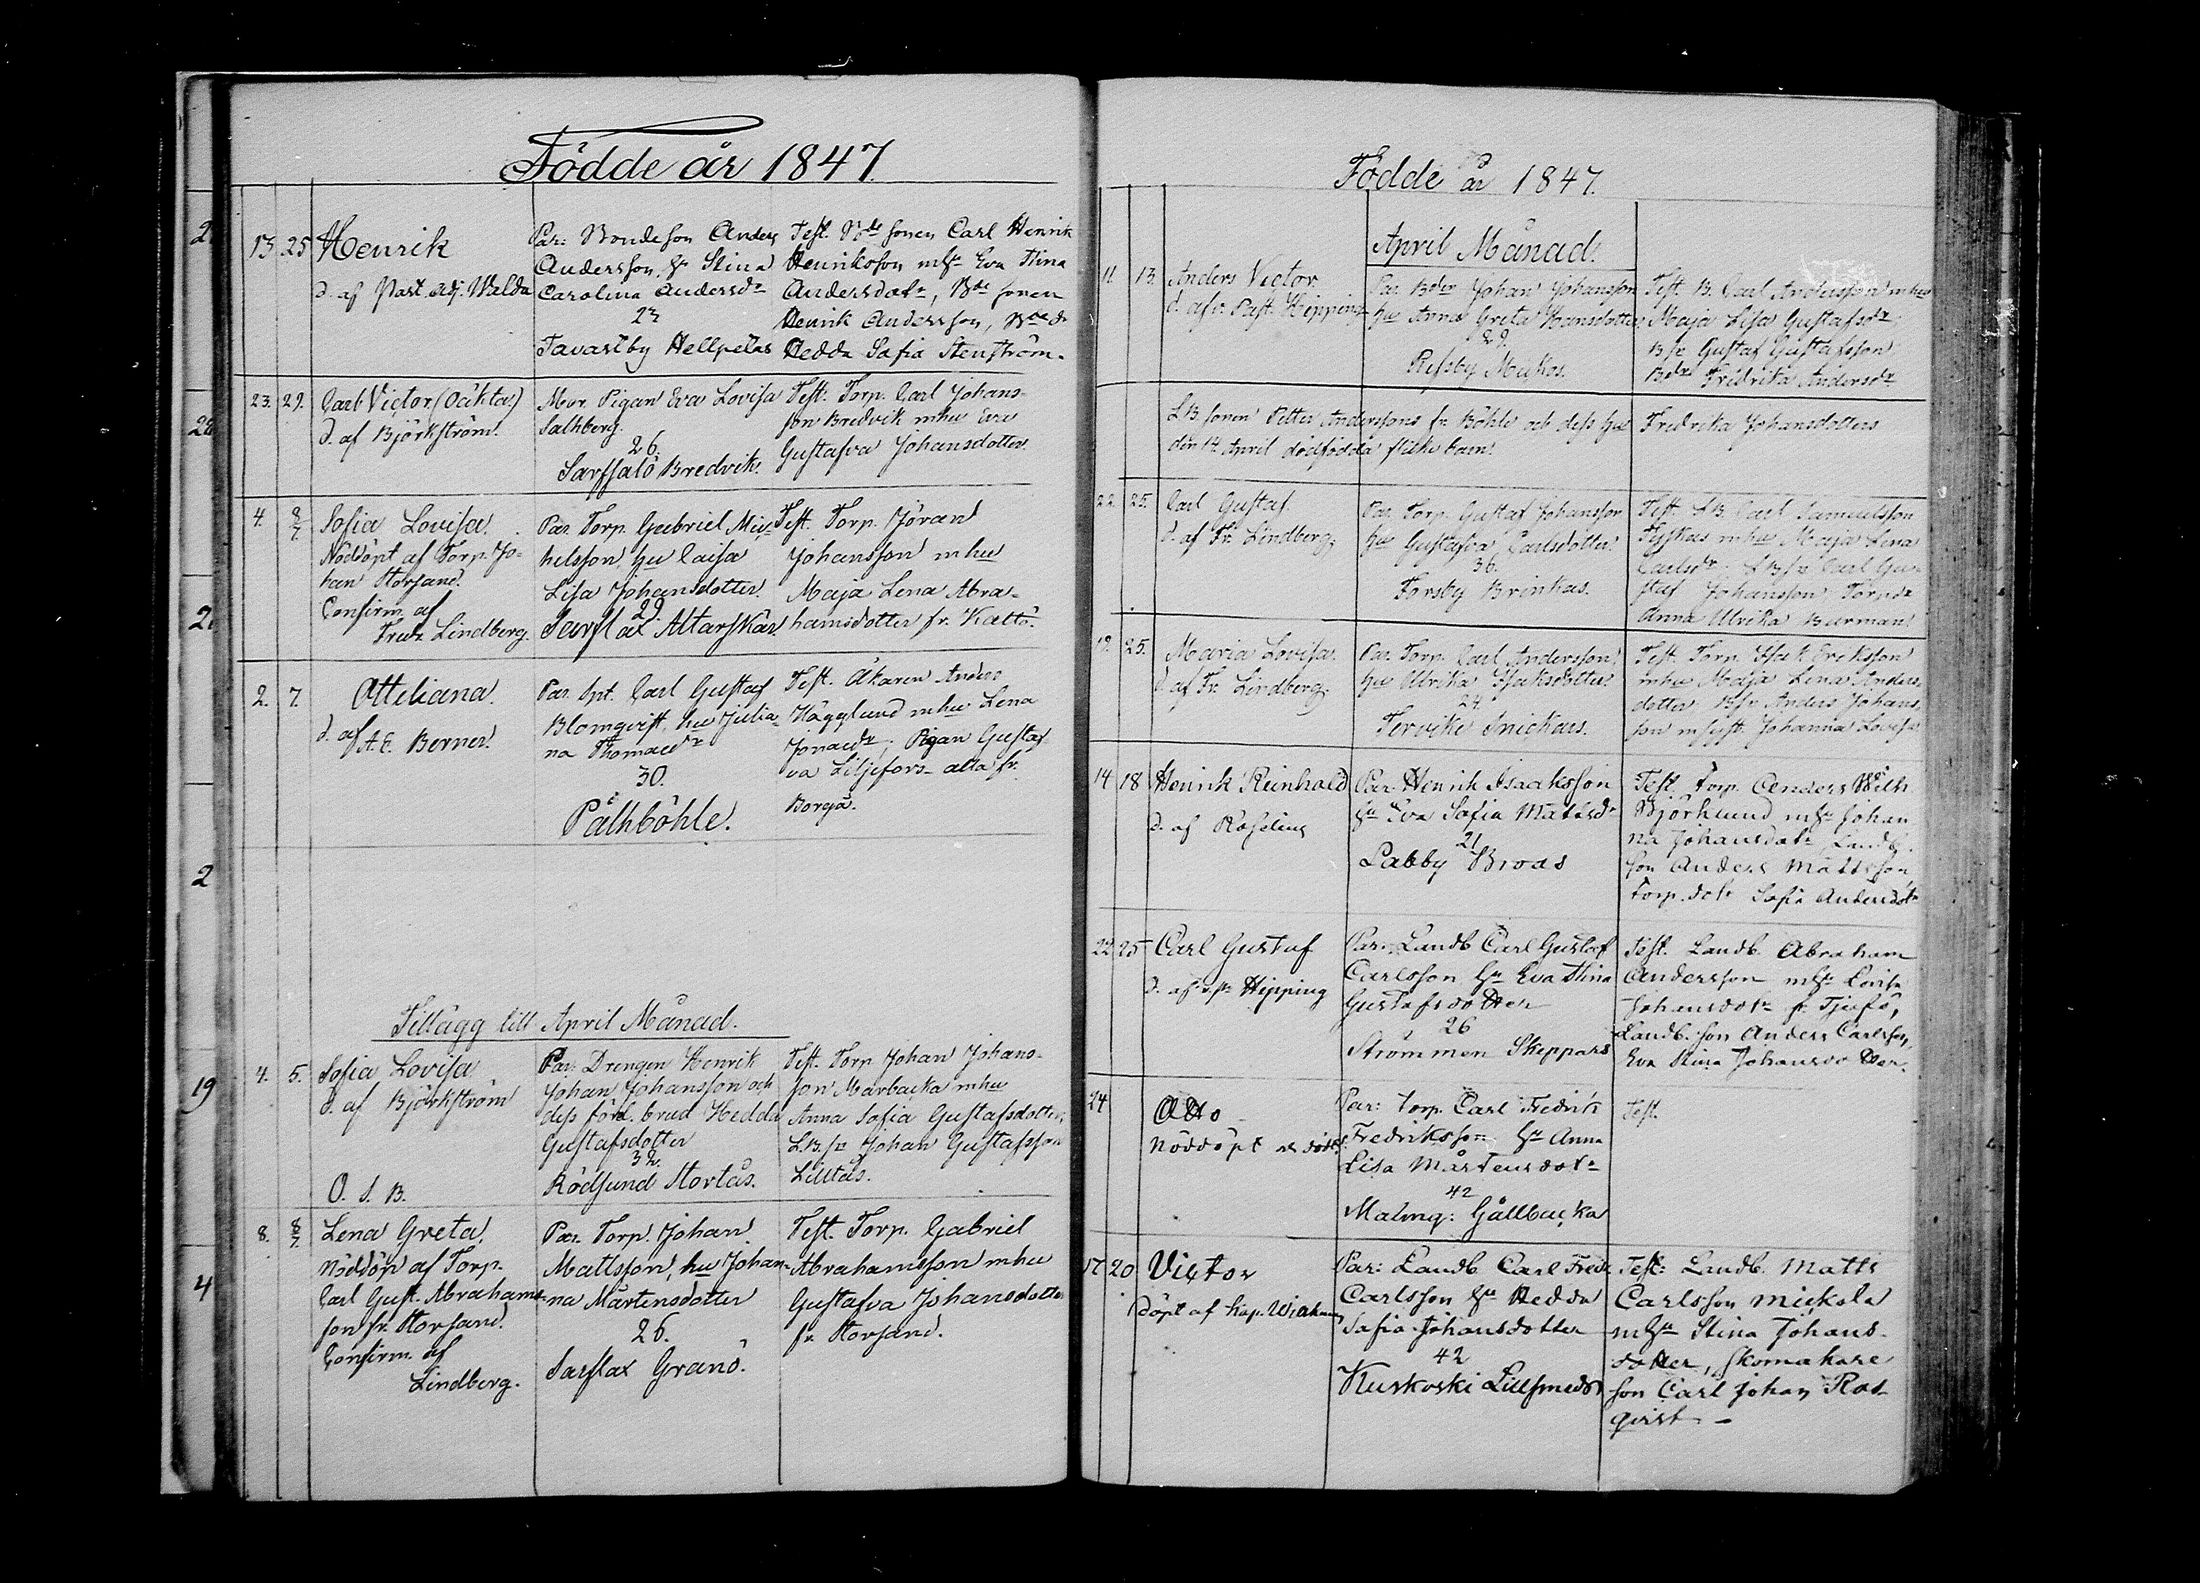 Födde år 1847.
13. 25 Henrik
d. af Past. Adj. Walda
Par: Bondeson Anders
Andersson, hu Stina
Carolina Andersdr
23
Tavastby Hellpetas
Test. Bdesonen Carl Henrik
Henriksson mhu Eva Stina
Andersdotr, Bdesonen
Henrik Andersson,
Hedda Sofia Stenström.
23. 29. Carl Victor (Oäkta)
d. af Björkström.
Mor. Pigan Eva Lovisa
Sahlberg.
26.
Sarfsalö Bredvik.
Test. Torp. Carl Johans-
son Bredvik mhu Eva
Gustafva Johansdotter.
4. 8/7. Sofia Lovisa.
Nöddöpt af Torp. Jo-
han Storsand.
Confirm. af
Fredr Lindberg.
Par. Torp. Gabriel Mic-
helsson, hu Caisa
Lisa Johansdotter.
29
Sarflax Altarskär.
Test. Torp. Jöran
Johansson mhu
Maja Lena Abra-
hamsdotter fr. Kattö.
2. 7. Ottiliana.
d. af A. E. Berner.
Par. Carl Gustaf
Blomqvist, hu Julia-
na Thomaedr
30.
Pålhböhle.
Test. Åkaren Anders
Hägglund mhu Lena
Jonaedr; Pigan Gustaf-
va Liljefors alla fr.
Borgå.
Tillägg till April Månad.
4. 5. Sofia Lovisa
d. af Björkström
O. S. B.
Par: Drengen Henrik
Johan Johansson och
dess förl. brud Hedda
Gustafsdotter
32
Rödsund Stortås.
Test. Torp Johan Johans-
son Marbacka mhu
Anna Sofia Gustafsdotter;
L.B.sr Johan Gustafsson
Lilltås.
8. 8/7. Lena Greta.
Nöddöp af Torp.
Carl Gust. Abrahams-
son fr. Storsand.
Confirm. af
Lindberg.
Par. Torp. Johan
Mattsson, hu Johan-
na Mårtensdotter
26.
Sarflax Granö.
Test. Torp. Gabriel
Abrahamsson mhu
Gustafva Johansdotter
fr. Storsand.
Födde år 1847.
April Månad.
11. 13. Anders Victor
d. af v. Past. Hipping
Par. Bden Johan Johansson
hu Anna Greta Hansdotter
29.
Rysby Mickos.
Test. B. Carl Andersson mhu
Maja Lisa Gustafsdr;
Bsr Gustaf Gustafsson
Bdr Fredrika Andersdr
L.B. sonen Petter Anderssons fr. Böhle och dess hu Fredrika Johansdotters
den 14 April dödfödda flicke barn.
22. 25. Carl Gustaf.
d. af Fr. Lindberg;
Par. Torp. Gustaf Johansson
hu Gustafva Carlsdotter
36.
Forsby Brinkas.
Test. L.B. Carl Samuelsson
Tyskas mhu Maja Lena
Carlsdr; L.B.sr Carl Gu-
staf Johansson Torpdr
Anna Ulrika Burman.
19. 25. Maria Lovisa.
d. af Fr. Lindberg;
Par. Torp. Carl Andersson
hu Ulrika Isaksdotter
24.
Tervike Snickars.
Test. Torp. Isak Eriksson
mhu Maja Lena Anders-
dotter. Bsr Anders Johans-
son m syst. Johanna Lovisa
14 18 Henrik Reinhold
d. af Roseling
Par. Henrik Isaaksson
hu Eva Sofia Matsdr
21
Labby Broas
Test. Torp. Anders Wilh
Björklund mhu Johan
na Johansdotr Landb.
son Anders Mattsson
Torp. dotr Sofia Andersdotr
22 25 Carl Gustaf
d. af v. pr Hipping
Par. Landb Carl Gustaf
Carlsson hu Eva Stina
Gustafsdotter
26
Strömmen Skeppars
Test. Landb. Abraham
Andersson mhu Lovisa
Johansdotr fr Tjusö,
Landb. son Anders Carlsson,
Eva Stina Johansdotter.
24 Otto
Nöddöpt
Par: Torp. Carl Fredrik
Fredriksson hu Anna
Lisa Mårtensdotr
42
Malmg: Gållbacka
Test.
17 20 Victor
döpt af kap. Wirkman
Par: Landb. Carl Fredr
Carlsson hu Hedda
Sofia Johansdotter
42
Kuskoski Lillsmeds
Test: Landb. Matts
Carlsson Mickola
mhu Stina Johans-
dotter, skomakare
son Carl Johan Ros-
qvist –